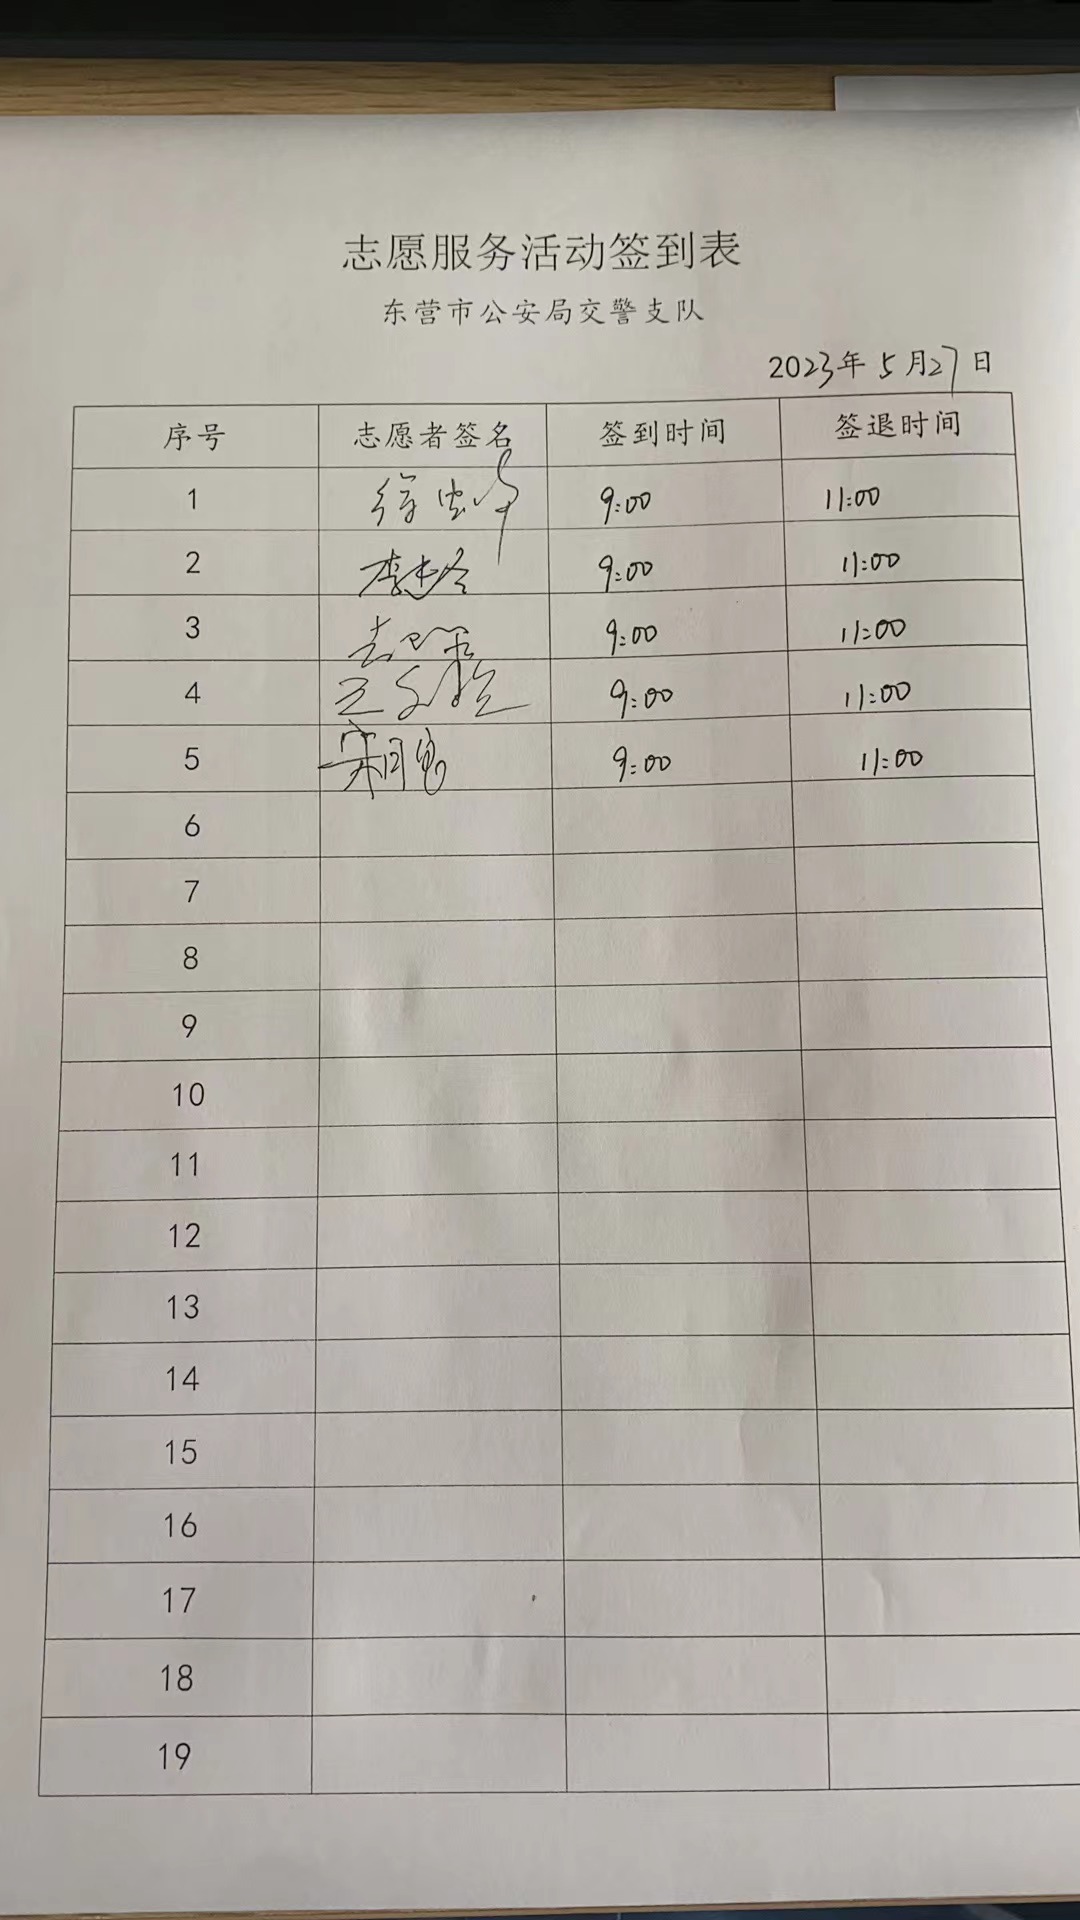 志愿服务活动签到表
东营市公安局交警支队
2023年5月27日
序号 志愿者签名 签到时间 签退时间
1 徐 9:00 11:00
2 李 9:00 11:00
3 9:00 11:00
4 王 9:00 11:00
5 宋 9:00 11:00
6
7
8
9
10
11
12
13
14
15
16
17
18
19